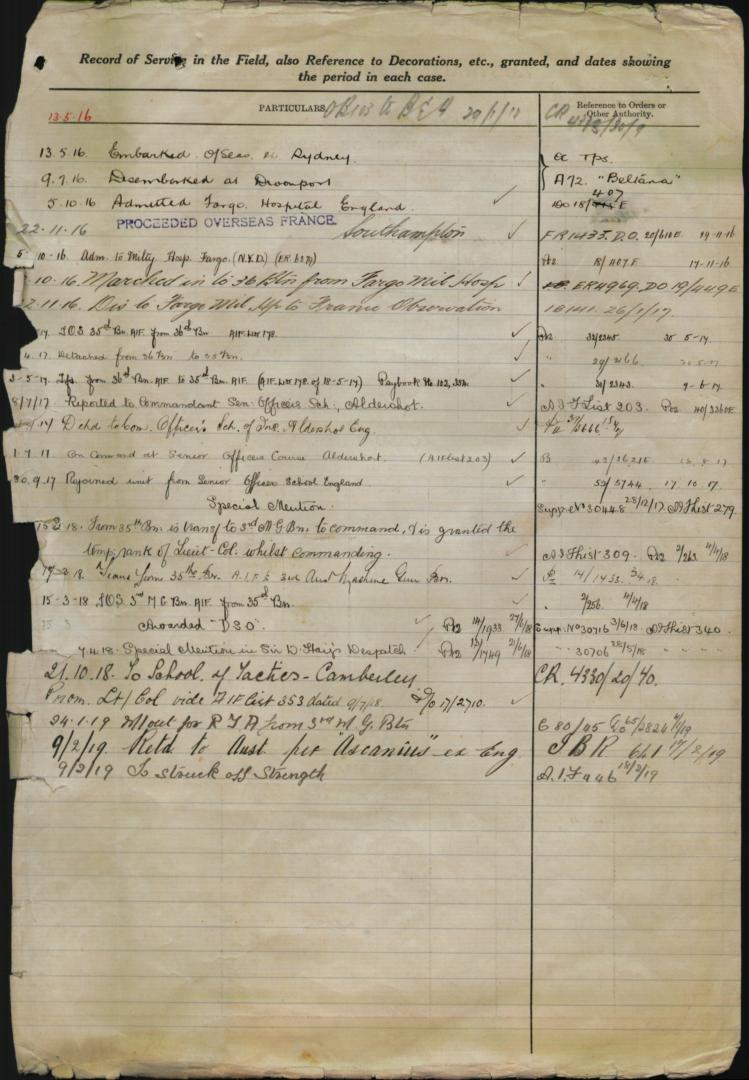 Record of Service in the Field, also Reference to Decorations, etc., granted, and dates showing
the period in each case.
13.5.16 PARTICULARS 20/1/17 Reference to Orders or
Other Authority.
CR
13.5.16. Embarked O'Seas at Sydney. Tps.
9.7.16 Disembarked at Devonport A72. "Beltana"
5.10.16 Admitted Fargo Hospital England. 407
DO 18/ E
22.11.16 PROCEEDED OVERSEAS FRANCE. Southampton FR1433. D.O. 20/610E 29-11-16
5 -10-16. Adm. to Milty Hosp. Fargo. (N.Y.D) (ER 6279) 18/407E 17-11-16
.10.16. Marched in to 36 Btn from Fargo Mil Hosp ER4969. DO 19/449E
2.11.16. Dis to Fargo Mil Hp to France Observation 1B141. 26/1/17.
17. T.O.S. 35th Bn. AIF. from 36th Bn 32/2345. 30 5-17.
4.17. Detached from 36 Bn. to 35 Bn. 29/2166
3-5-17. Tfs. from 36th Bn. AIF. to 35th Bn. AIF. (A.I.F. List 178. of 18-5-17) Paybook No. 102,334. " 31/2343. 9-6-17
8/7/17. Reported to Commandant Sen. Officers Sch., Aldershot. A I F List 203. 40/3360E
/17 Dchd to Com. Officer's Sch. of Inf. Aldershot Eng.
1.7.17 On Command at Senior Officers Course Aldershot. (AIF List 203)
30.9.17 Rejoined unit from Senior Officer School England " 53/5744. 17.10.17.
Special Mention. Suppt No 30448 28/12/17 AIF List 279.
15 3.18. From 35th Bn. is transf to 3rd M.G.Bn. to command, & is granted the
temp. rank of Lieut-Col. whilst commanding. AIF List 309. 2/263 4/4/18
17-3 18. Trans from 35th Bn. A.I.F. to 3rd Aust Machine Gun Bn. 14/1433.
15-3-18 T.O.S. 3rd M G Bn. AIF. from 35th Bn. " 2/256. 4/4/18
Awarded "DSO". 14/1933 27/6/18 Supp. No 30716 3/6/18. AIF List 340.
7.4.18. Special Mention in Sir D. Haig's Despatch 13/1749 21/6/18 " 30706 28/5/18
21.10.18. To School of Tactics - Camberley CR. 4330/20/40.
Prom. Lt/Col vide AIF List 353 dated 9/7/18. D/O 17/2710.
24.1.19 M/out for R T A from 3rd M. G. Btn
9/2/19 Retd to Aust per "Ascanius" ex Eng. I B R 641 17/2/19
9/2/19 To struck off Strength A.I.F 18/2/19